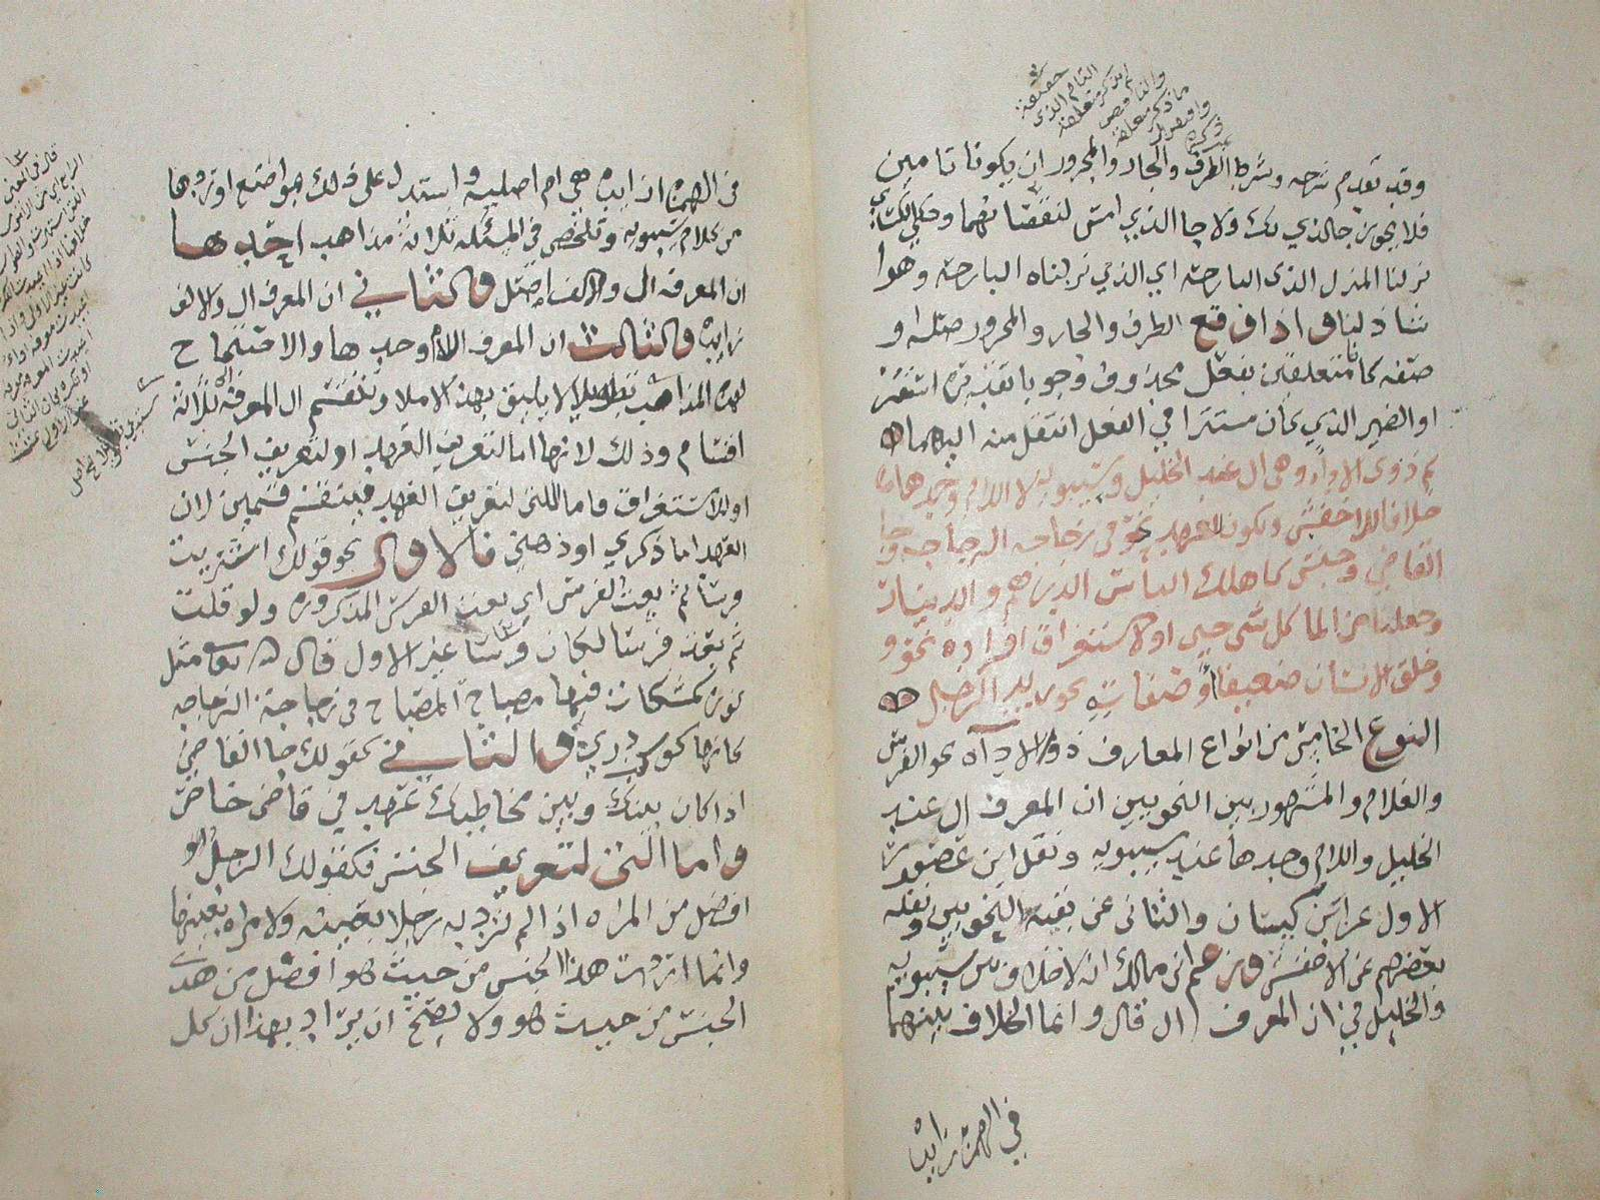 حقيقة
التام الذي
لم يذكر متعلقه
والناقص
ما ذكر متعلقه
ذكره
وقد تقدم شرحه وشرط الظرف والجار والمجرور ان يكونا تامين
فلا يجوز جا الذي بك ولا جا الذي امس لنقصانهما وحكى الكسائي
نزلنا المنزل الذى البارحة اي الذي نزلناه البارحة وهوا
شاذ واذا وقع الظرف والجار والمجرور صلة او
صفه كانا متعلقين بفعل محذوف وجوبا تقديره استقر
او الضمير الذي كان مستترا في الفعل انتقل منه اليهما
ثم ذوى الاداه وهي ال عند الخليل وسيبويه لا اللام وحدها
خلافا للاخفش وتكون للعهد نحو في زجاجه الزجاجه وجا
القاضي وجنس كاهلك الناس الدرهم والدينار
وجعلنا من الما كل شي حي او لاستغراق افراده نحو و
وخلق الانسان ضعيفا او صفاته نحو زيد الرجل
النوع الخامس من انواع المعارف ذو الاداه نحو الفرس
والغلام والمشهور بين النحويين ان المعرف ال عند
الخليل واللام وحدها عند سيبويه ونقل ابن عصفور
الاول عن ابن كيسان والثانى عن بقية النحويين ونقله
بعضهم عن الاخفش وزعم ابن مالك انه لا خلاف بين سيبويه
والخليل في ان المعرف ال قال وانما الخلاف بينهما
في الهمزة زايدة
في الهمزة ازايده هي ام اصليه واستدل على ذلك بمواضع اوردها
من كلام سيبويه وتلخص في المسئله ثلاثة مذاهب احدها
ان المعرف ال والالف اصل والثاني ان المعرف ال والالف
زايده والثالث ان المعرف اللام وحدها والاحتجاج
لهذه المذاهب تطويلا لا يليق بهذا الاملا وتنقسم ال المعرفه ثلاثة
اقسام وذلك لانها اما لتعريف العهد او لتعريف الجنس
او للاستغراق فاما اللتى لتعريف العهد فينقسم قسمين لان
العهد اما ذكري او ذهني فالاول نحو قولك اشتريت
فرسا ثم بعت الفرس اي بعت الفرس المذكوره ولو قلت
ثم بعت فرسا لكان فرسا غير الاول قال الله تعا مثل
نوره كمشكاة فيها مصباح المصباح في زجاجة الزجاجه
كانها كوكب دري والثاني كقولك جا القاضي
اذا كان بينك وبين مخاطبك عهد في قاضى خاص
واما التى لتعريف الجنس فكقولك الرجل
افضل من المراه اذا لم ترد به رجلا بعينه ولا امراه بعينها
وانما اردت هذا الجنس من حيث هو افضل من هذا
الجنس من حيث هو ولا يصح ان يراد بهذا ان كل